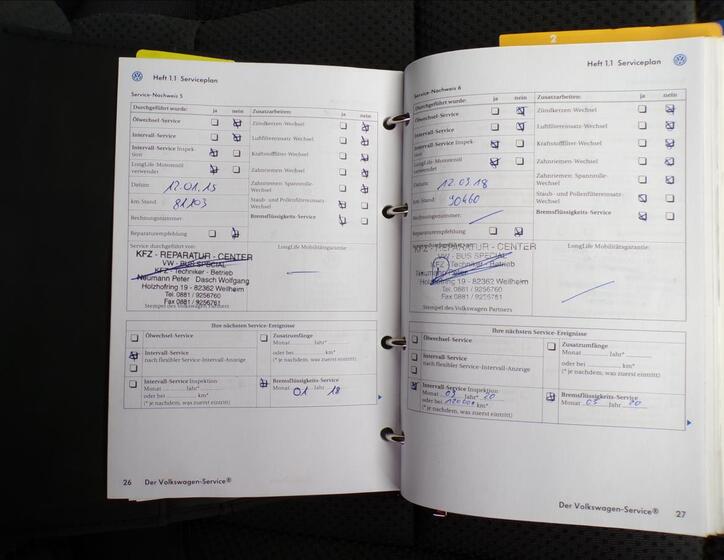 Heft 1.1 Serviceplan
Service-Nachweis 5
Durchgeführt wurde: ja nein
Ölwechsel-Service
Intervall-Service
Intervall-Service Inspek-
tion
LongLife-Motorenöl
verwendet
Datum: 12.01.15
km-Stand: 81203
Rechnungsnummer:
Reparaturempfehlung
Zusatzarbeiten: ja nein
Zündkerzen-Wechsel
Luftfiltereinsatz-Wechsel
Kraftstofffilter-Wechsel
Zahnriemen-Wechsel
Zahnriemen, Spannrolle-
Wechsel
Staub- und Pollenfiltereinsatz-
Wechsel
Bremsflüssigkeits-Service
Service durchgeführt von:
KFZ - REPARATUR - CENTER
VW - BUS SPECIAL
KFZ - Techniker - Betrieb
Neumann Peter Dasch Wolfgang
Holzhofring 19 - 82362 Weilheim
Tel. 0881 / 9256760
Fax 0881 / 9256761
Stempel des Volkswagen Partners
LongLife Mobilitätsgarantie:
Ihre nächsten Service-Ereignisse
Ölwechsel-Service
Intervall-Service
nach flexibler Service-Intervall-Anzeige
Zusatzumfänge
Monat Jahr*
oder bei km*
(* je nachdem, was zuerst eintritt)
Intervall-Service Inspektion
Monat Jahr*
oder bei km*
(* je nachdem, was zuerst eintritt)
Bremsflüssigkeits-Service
Monat 01 Jahr 18
26 Der Volkswagen-Service®
2
Heft 1.1 Serviceplan
Service-Nachweis 6
Durchgeführt wurde: ja nein
Ölwechsel-Service
Intervall-Service
Intervall-Service Inspek-
tion
LongLife-Motorenöl
verwendet
Datum: 12.03.18
km-Stand: 90460
Rechnungsnummer:
Reparaturempfehlung
Zusatzarbeiten: ja nein
Zündkerzen-Wechsel
Luftfiltereinsatz-Wechsel
Kraftstofffilter-Wechsel
Zahnriemen-Wechsel
Zahnriemen, Spannrolle-
Wechsel
Staub- und Pollenfiltereinsatz-
Wechsel
Bremsflüssigkeits-Service
KFZ - REPARATUR - CENTER
VW - BUS SPECIAL
KFZ - Techniker - Betrieb
Neumann Peter Dasch Wolfgang
Holzhofring 19 - 82362 Weilheim
Tel. 0881 / 9256760
Fax 0881 / 9256761
Stempel des Volkswagen Partners
LongLife Mobilitätsgarantie:
Ihre nächsten Service-Ereignisse
Ölwechsel-Service
Intervall-Service
nach flexibler Service-Intervall-Anzeige
Zusatzumfänge
Monat Jahr*
oder bei km*
(* je nachdem, was zuerst eintritt)
Intervall-Service Inspektion
Monat 03 Jahr* 20
oder bei 120000 km*
(* je nachdem, was zuerst eintritt)
Bremsflüssigkeits-Service
Monat 03 Jahr 20
Der Volkswagen-Service® 27